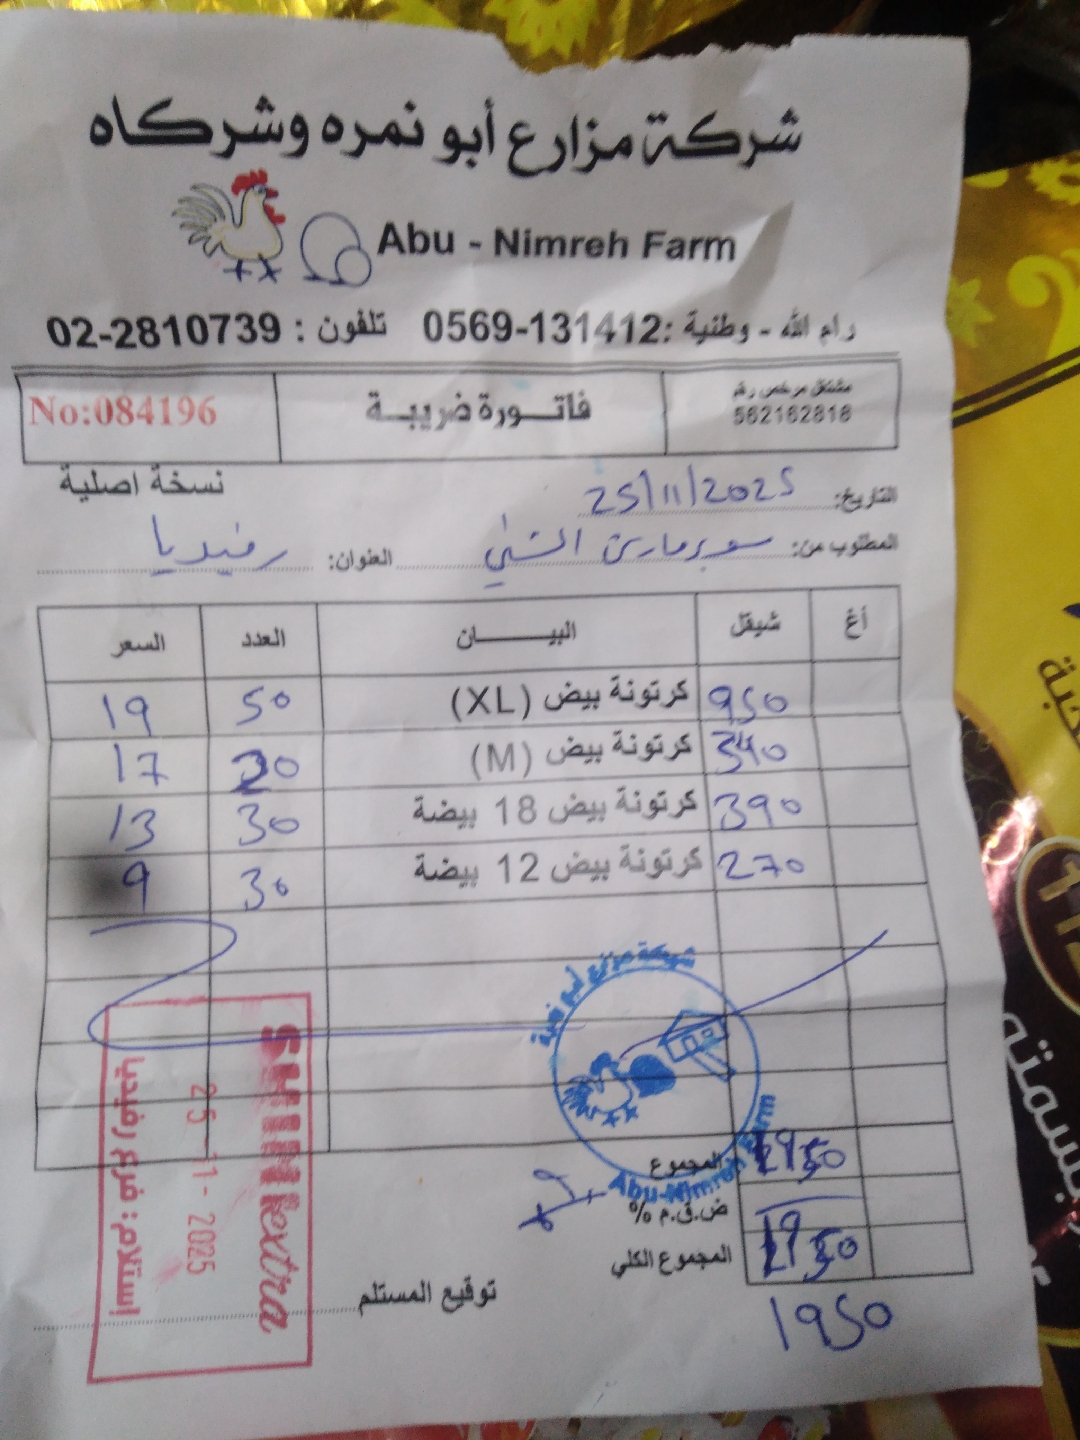 شركة مزارع أبو نمره وشركاه
Abu - Nimreh Farm
رام الله - وطنية :0569-131412 تلفون : 02-2810739
مشتغل مرخص رقم
562162816
فاتـــورة ضريبــة
No:084196
نسخة اصلية
التاريخ: 25/11/2025
المطلوب من: سوبرماركت الشني العنوان: رفيديا
أغ شيقل البيـــــــان العدد السعر
950 كرتونة بيض (XL) 50 19
340 كرتونة بيض (M) 20 17
390 كرتونة بيض 18 بيضة 30 13
270 كرتونة بيض 12 بيضة 30 9
شركة مزارع أبو نمرة
Abu-Nimreh Farm
المجموع 1950
ض.ق.م %
المجموع الكلي 1950
1950
توقيع المستلم
extra
2025
إستلام : فرع رفيديا